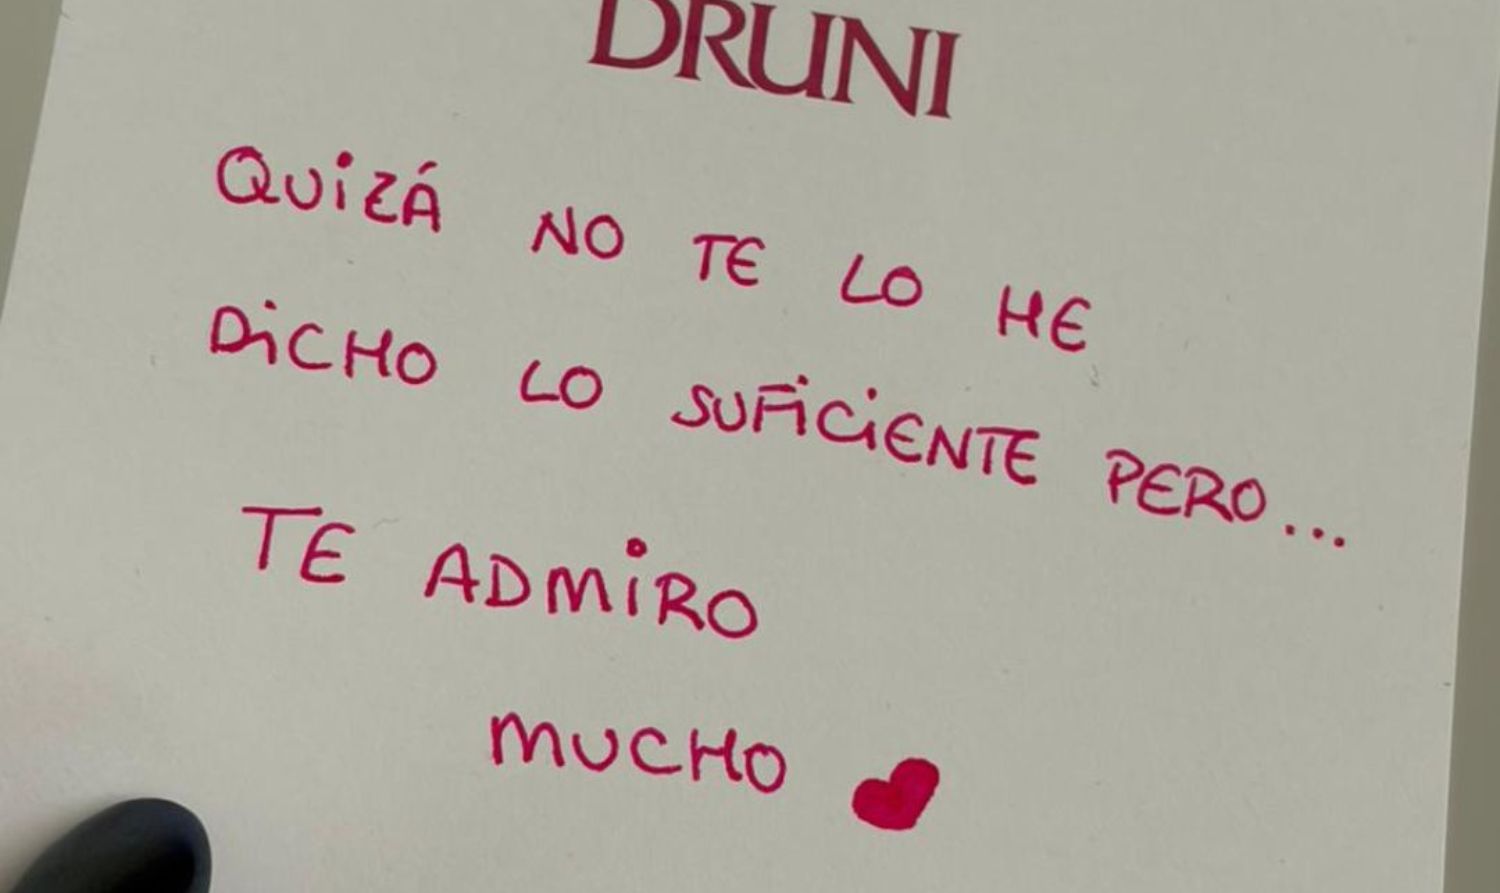 DRUNI
QUIZÁ NO TE LO HE
DICHO LO SUFICIENTE PERO...
TE ADMIRO
MUCHO